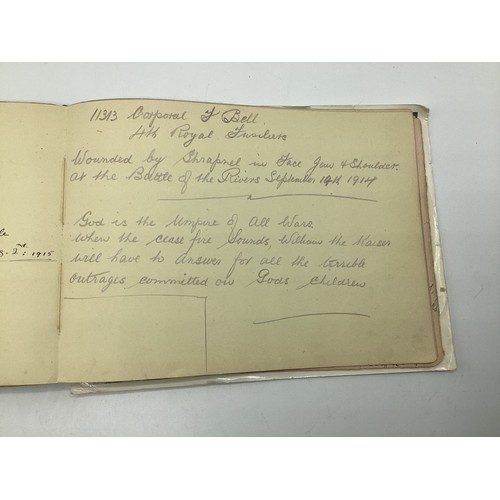 11313 Corporal F Bell.
4th Royal Fusiliers
Wounded by Shrapnel in Face Jaw & Shoulder.
at the Battle of the Rivers September 14th 1914
God is the Umpire of All Wars
When the cease fire Sounds, William the Kaiser
will have to Answer for all the terrible
Outrages committed on Gods Children
2nd: 1915